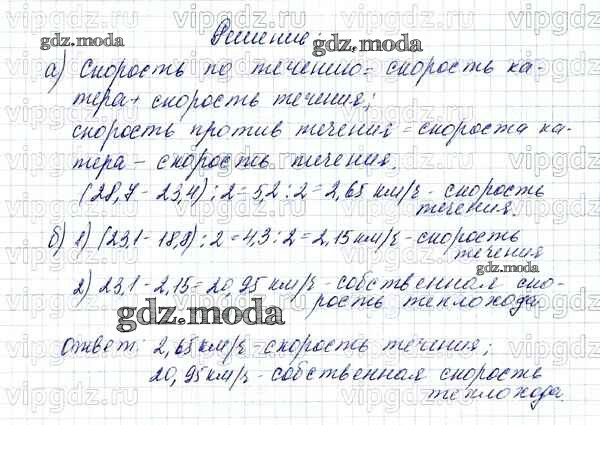 Решение:
а) Скорость по течению = скорость ка-
тера + скорость течения;
скорость против течения = скорость ка-
тера - скорость течения.
(28,7 - 23,4) : 2 = 5,2 : 2 = 2,65 км/ч - скорость
течения.
б) 1) (23,1 - 18,8) : 2 = 4,3 : 2 = 2,15 км/ч - скорость
течения
2) 23,1 - 2,15 = 20,95 км/ч - собственная ско-
рость теплохода
gdz.moda
Ответ: 2,65 км/ч - скорость течения;
20,95 км/ч - собственная скорость
теплохода.